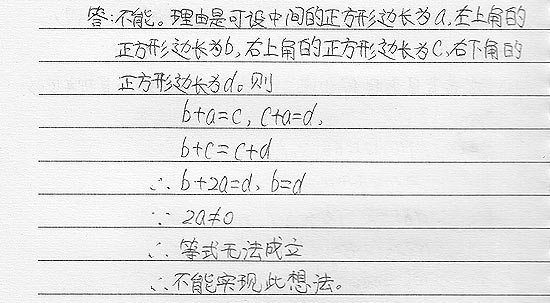 答:不能。理由是可设中间的正方形边长为a,左上角的
正方形边长为b,右上角的正方形边长为C,右下角的
正方形边长为d。则
b+a=c, c+a=d,
b+c=c+d
∴ b+2a=d, b=d
∵ 2a≠0
∴ 等式无法成立
∴不能实现此想法。